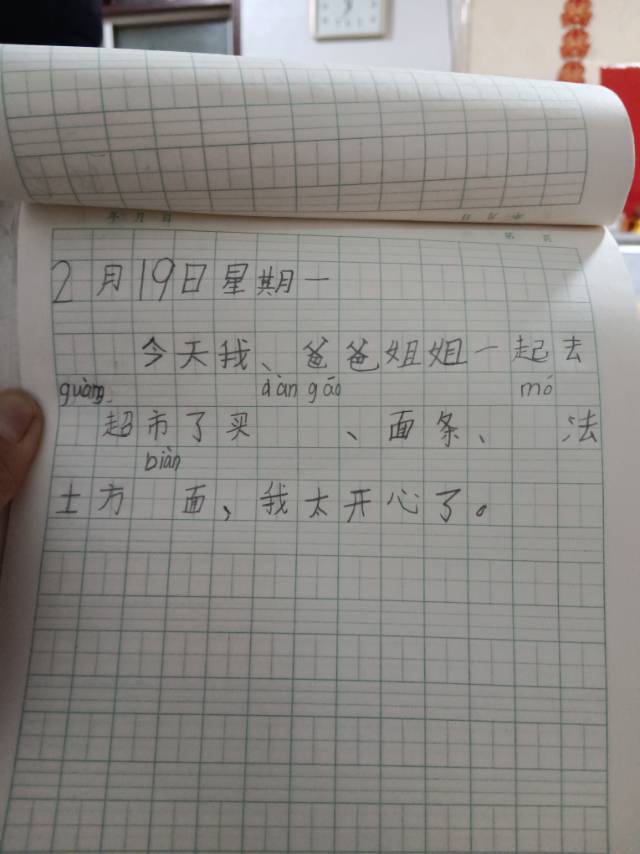 年 月 日
2月19日星期一
今天我、爸爸姐姐一起去
guàng dàn gāo mó
超市了买 、面条、 法
biàn
士方 面，我太开心了。